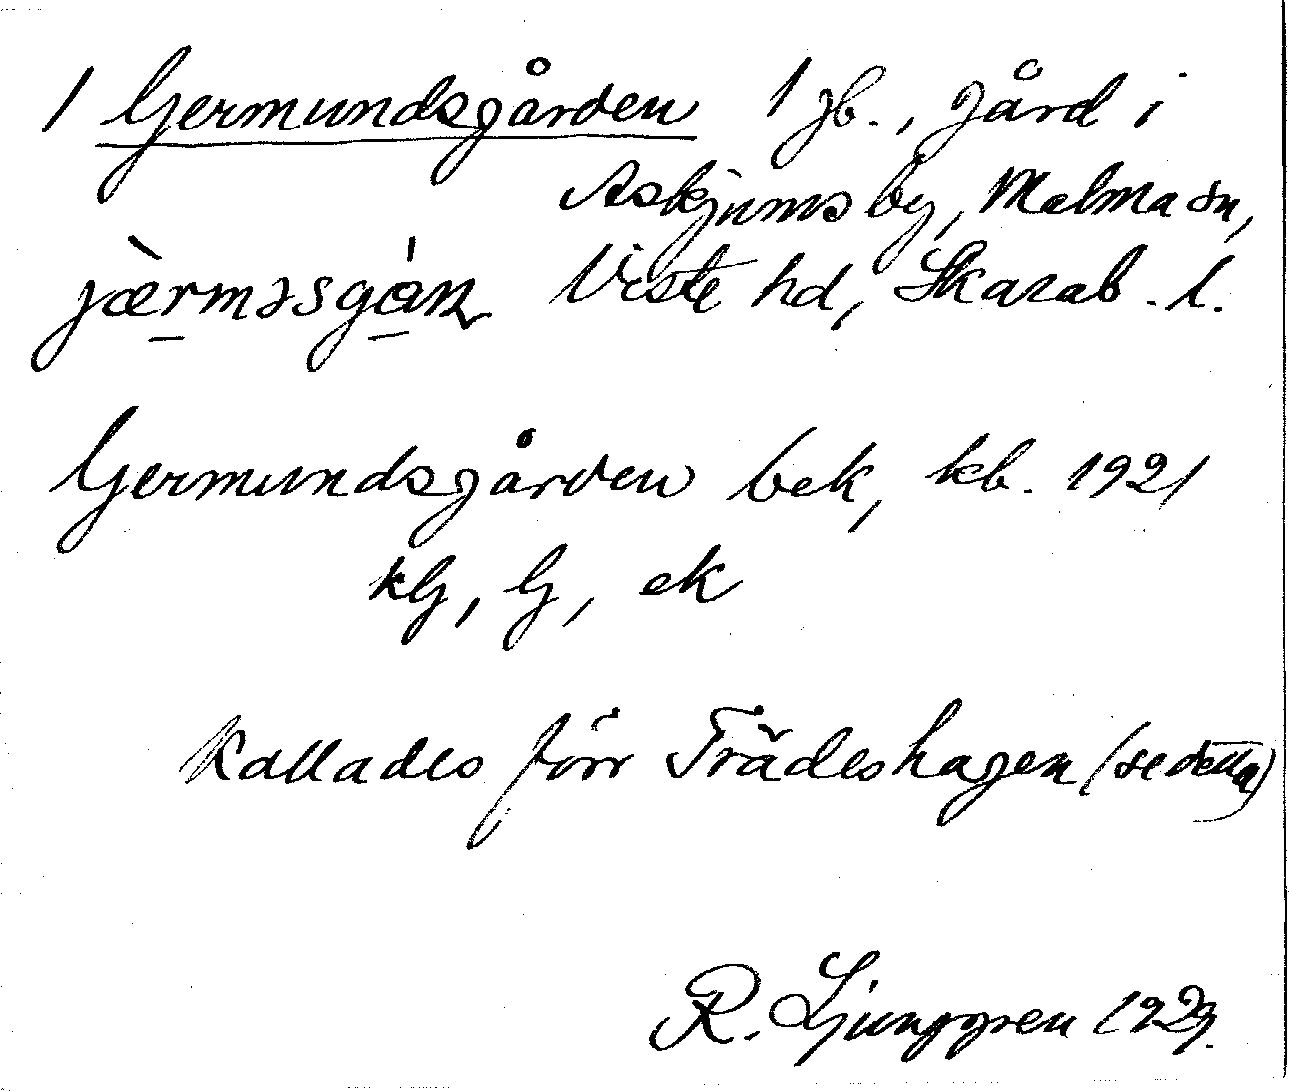 1 Germundsgården 1 jb., gård i
Askjums by, Malma sn,
jæ̀rməsgán Viste hd, Skarab. l.
Germundsgården bek, kb. 1921
kG, G, ek
Kallades förr Trädeshagen (se detta)
R. Ljunggren 1929.